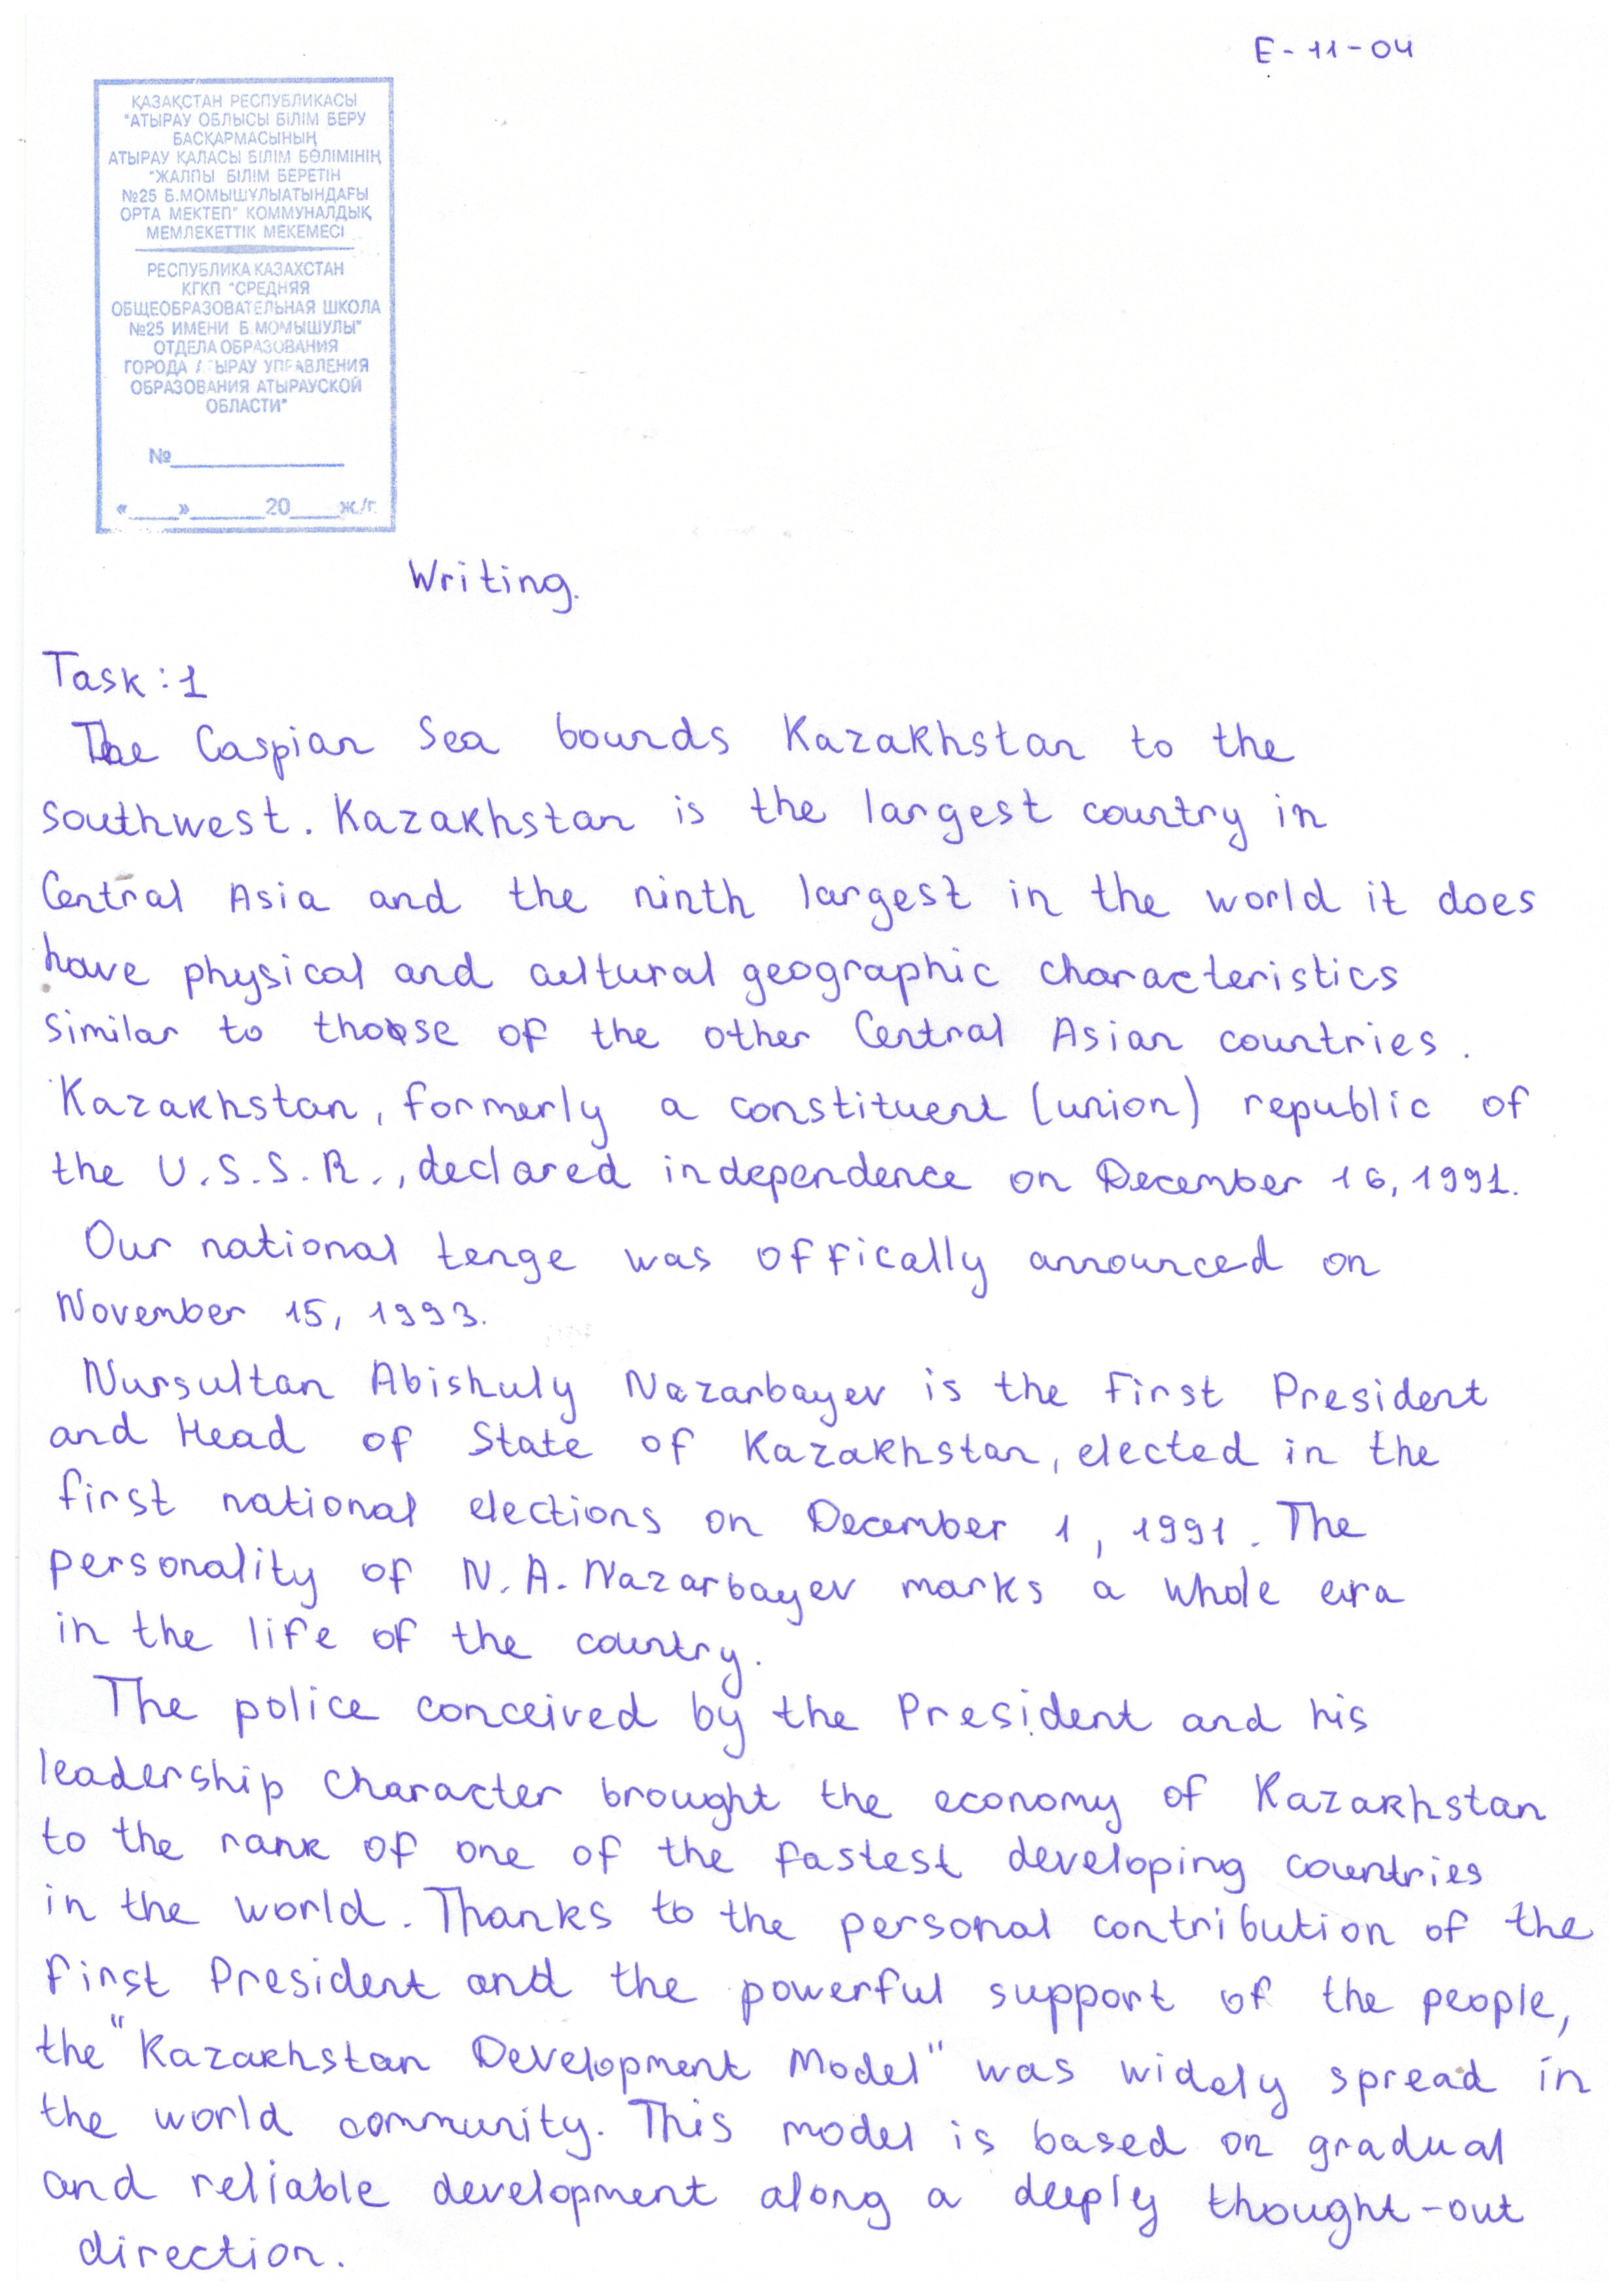 E-11-04
ҚАЗАҚСТАН РЕСПУБЛИКАСЫ
"АТЫРАУ ОБЛЫСЫ БІЛІМ БЕРУ
БАСҚАРМАСЫНЫҢ
АТЫРАУ ҚАЛАСЫ БІЛІМ БӨЛІМІНІҢ
"ЖАЛПЫ БІЛІМ БЕРЕТІН
№25 Б.МОМЫШҰЛЫАТЫНДАҒЫ
ОРТА МЕКТЕП" КОММУНАЛДЫҚ
МЕМЛЕКЕТТІК МЕКЕМЕСІ
РЕСПУБЛИКА КАЗАХСТАН
КГКП "СРЕДНЯЯ
ОБЩЕОБРАЗОВАТЕЛЬНАЯ ШКОЛА
№25 ИМЕНИ Б.МОМЫШУЛЫ"
ОТДЕЛА ОБРАЗОВАНИЯ
ГОРОДА АТЫРАУ УПРАВЛЕНИЯ
ОБРАЗОВАНИЯ АТЫРАУСКОЙ
ОБЛАСТИ"
№
«____»______20____ж./г.
Writing.
Task:1
The Caspian Sea bounds Kazakhstan to the
southwest. Kazakhstan is the largest country in
Central Asia and the ninth largest in the world it does
have physical and cultural geographic characteristics
similar to those of the other Central Asian countries.
Kazakhstan, formerly a constituent (union) republic of
the U.S.S.R., declared independence on December 16, 1991.
Our national tenge was offically announced on
November 15, 1993.
Nursultan Abishuly Nazarbayev is the First President
and Head of State of Kazakhstan, elected in the
first national elections on December 1, 1991. The
personality of N.A. Nazarbayev marks a whole era
in the life of the country.
The police conceived by the President and his
leadership character brought the economy of Kazakhstan
to the rank of one of the fastest developing countries
in the world. Thanks to the personal contribution of the
First President and the powerful support of the people,
the "Kazakhstan Development Model" was widely spread in
the world community. This model is based on gradual
and reliable development along a deeply thought-out
direction.